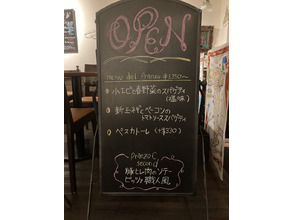 OPEN
menu del Pranzo ¥1350~
小エビと春野菜のスパゲティ
(塩味)
新玉ネギとベーコンの
トマトソーススパゲティ
ペスカトーレ (+¥330)
Pranzo C
second
豚ヒレ肉のソテー
ピッツァ職人風